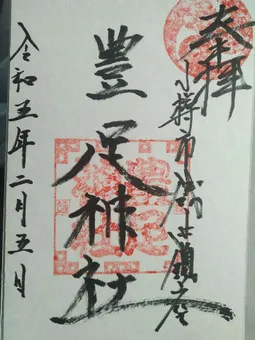 奉拝
小樽市銭函鎮座
豊足神社
令和五年二月五日